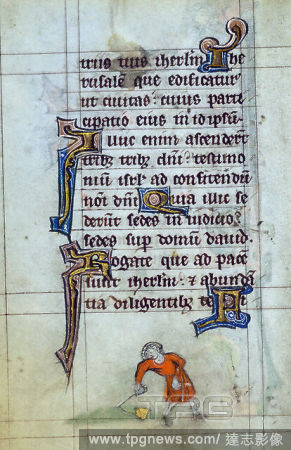 triis tuis iherl̄m Ihe
rusalē que edificatur
ut civitas: cuius parti
cipatio eius in idipsū.
Illuc enim ascenderūt
tribꝫ tribꝫ dn̄i: testimo
niū isrl̄ ad confitendū
nōi dn̄i Quia illuc se
derūt sedes in iudicio:
sedes sup domū david.
Rogate que ad pacē
sunt iherl̄m: ⁊ abundā
tia diligentibꝫ te Fi
TPG
www.tpgnews.com/ 達志影像